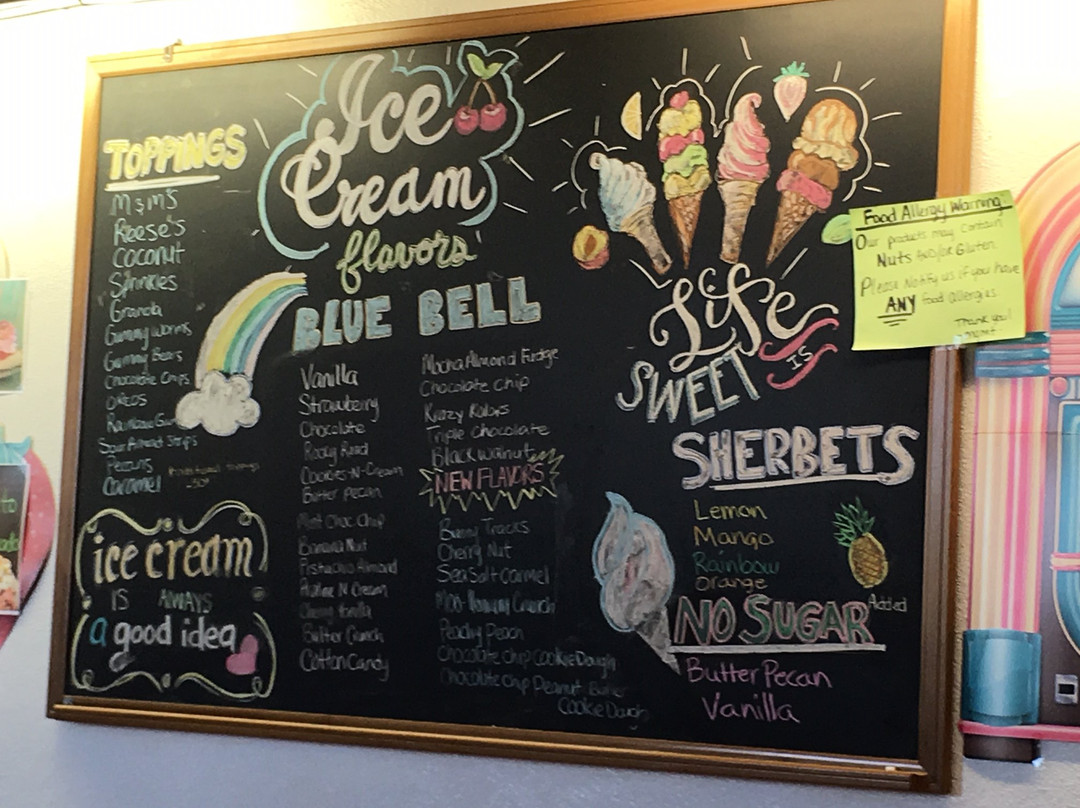 TOPPINGS
M&M'S
Reese's
Coconut
Sprinkles
Granola
Gummy Worms
Gummy Bears
Chocolate Chips
Oreos
Sour
Strips
Pecans
Caramel
ice cream
IS ALWAYS
a good idea
Ice
Cream
flavors
BLUE BELL
Vanilla
Strawberry
Chocolate
Rocky Road
Cookies-N-Cream
Butter Pecan
Mint Choc Chip
Banana Nut
Pistachio Almond
N Cream
Cherry Vanilla
Butter Crunch
Cotton Candy
Mocha Almond Fudge
Chocolate Chip
Krazy Kolors
Triple Chocolate
Black Walnut
NEW FLAVORS
Bunny Tracks
Cherry Nut
Sea Salt Carmel
Crunch
Peachy Peach
Chocolate Chip Cookie Dough
Chocolate Chip Peanut Butter
Cookie Dough
Life
IS
SWEET
SHERBETS
Lemon
Mango
Rainbow
Orange
NO SUGAR Added
Butter Pecan
Vanilla
Food Allergy Warning
Our products may contain
Nuts and/or Gluten.
Please Notify us if you have
ANY food allergies.
Thank you!